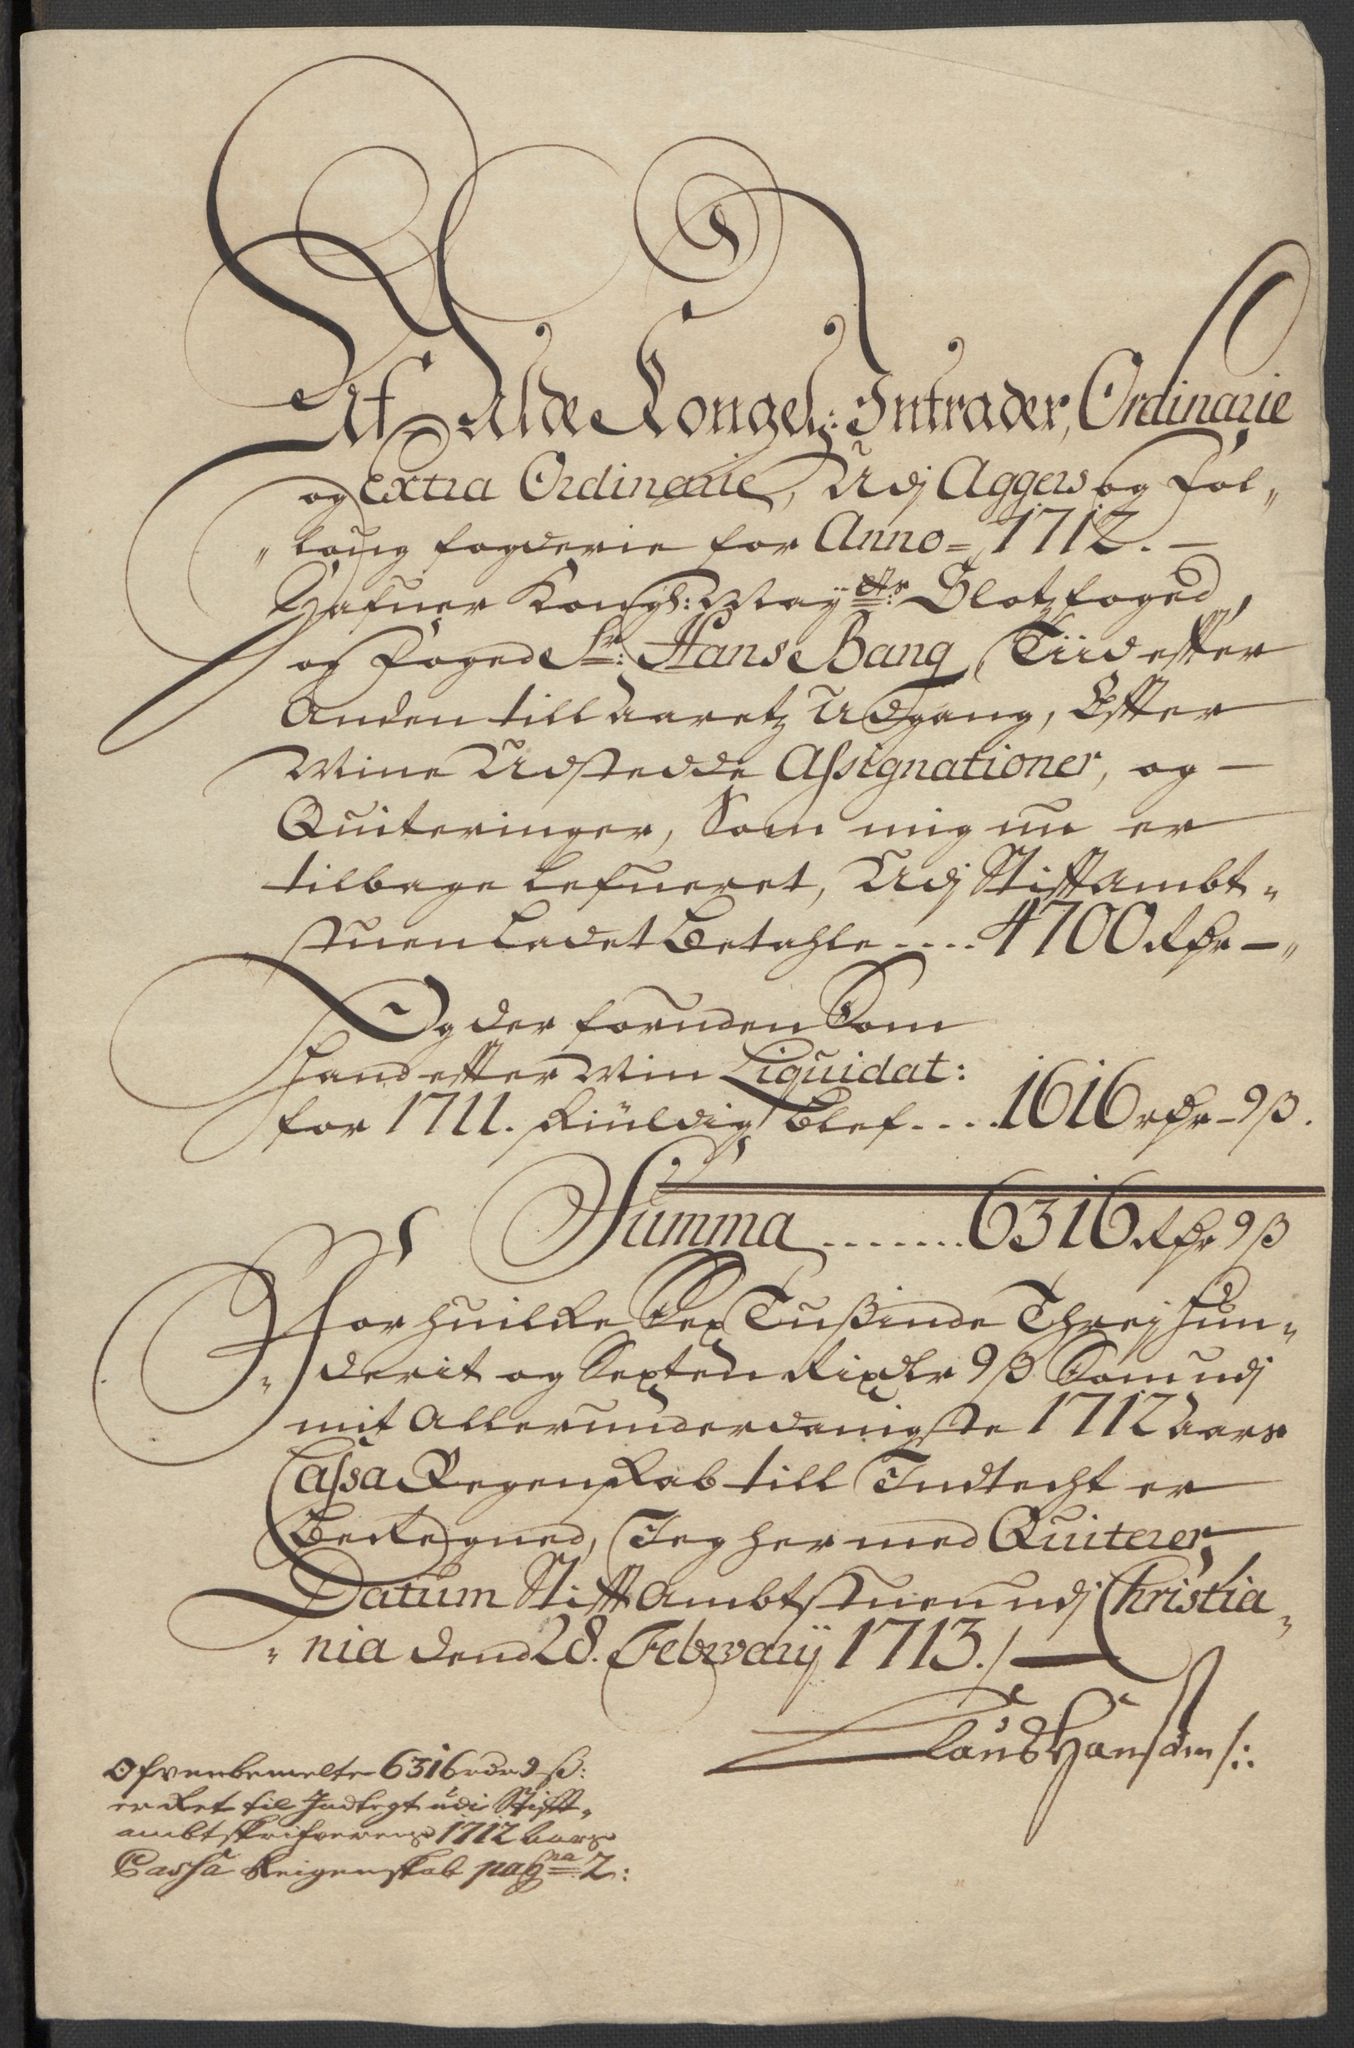 Af Alde Kongel: Intrader, Ordinarie
og Extra Ordinarie, Udj Aggers og Fol„
„loug fogderie for Anno = 1712. —
Hafuer Kongl: Mayᵗˢ: Slotzfoged
og Foged Sr: Hans Bang, Tiid efter
Anden till Aaretz Udgang, Efter
Mine Udstedde Assignationer, og —
Quiteringer, Som mig nu er
tilbage Lefueret, Udj StifftAmbt„
stuen Ladet Betahle .... 4700 Rdr —„
Og der foruden Som
hand efter Min Liquidat:
for 1711. skÿldig Blef .... 1616 rdr - 9 ß.
Summa ........ 6316 Rdr 9 ß
For huilke Sex Tußinde Threj hun„
„derit og Sexten Rixdlr 9 ß Som udj
mit Allerunderdanigste 1712 Aars
Cassa Regenskab till Indtecht er
Beregned, Jeg her med Quiterer,
Datum StifftAmbtstuen udj Christia„
„nia dend 28. Februarij 1713. /
Claus Hansøn /:
Ofvenbemelte 6316 rdr 9 ß:
er ført til Indtegt udi Stifft„
ambtskrifverens 1712 Aars
Cassa Reigenskab pagna 2: